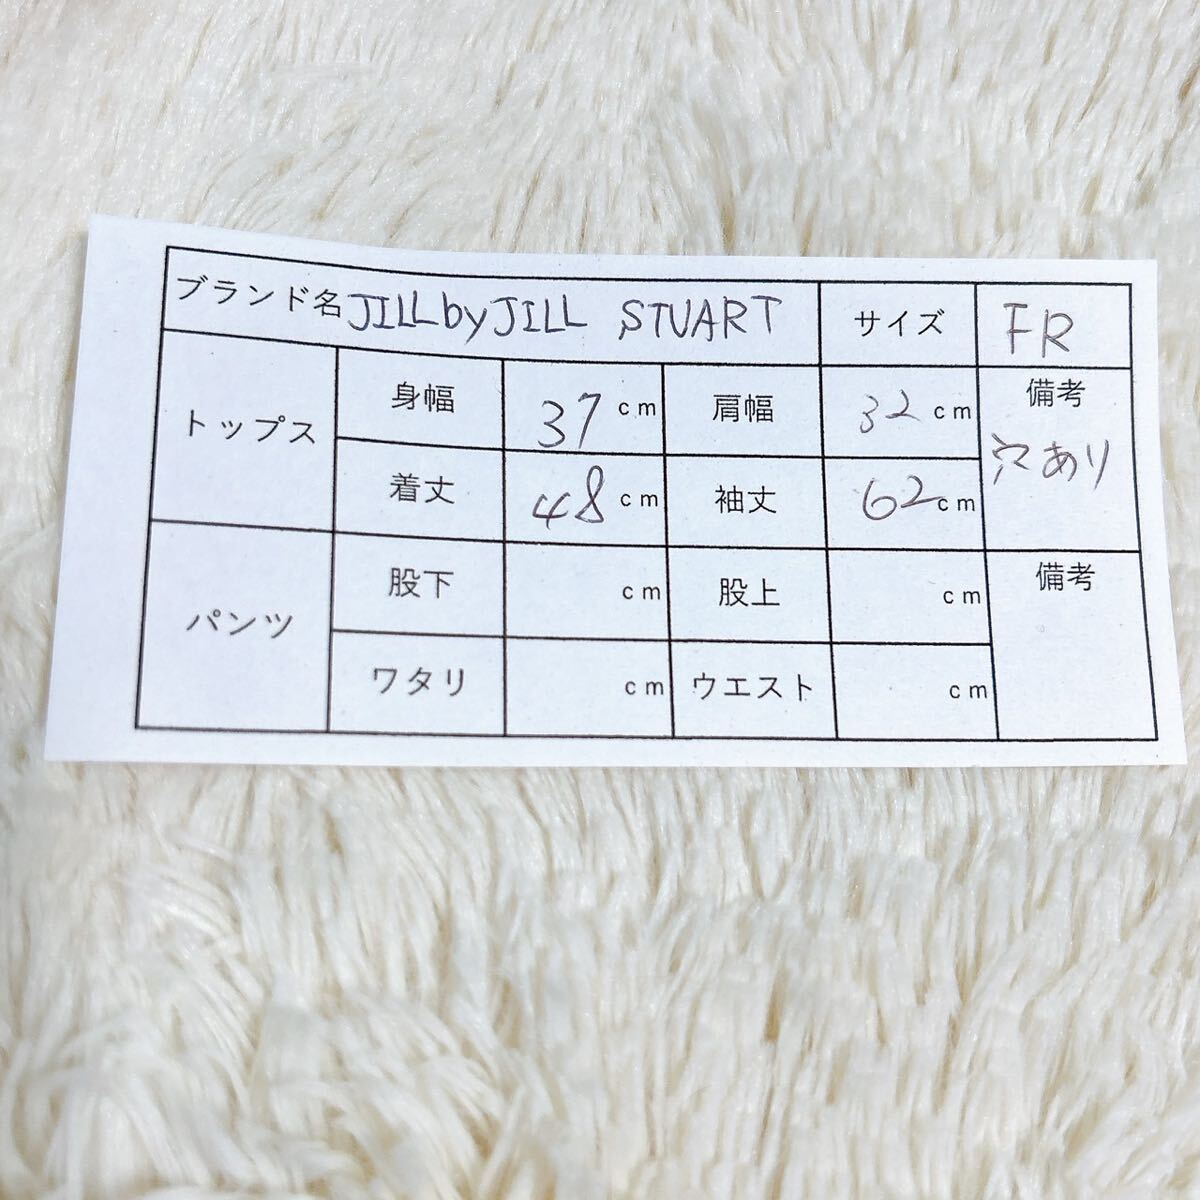 ブランド名 JILL by JILL STUART サイズ FR
トップス 身幅 37 cm 肩幅 32 cm 備考
穴あり
着丈 48 cm 袖丈 62 cm
パンツ 股下 cm 股上 cm 備考
ワタリ cm ウエスト cm